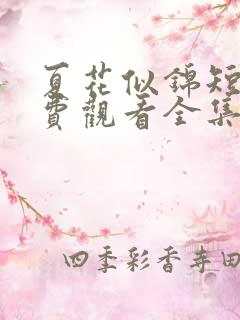 夏花似錦短
費觀看全集
四季彩香寺田